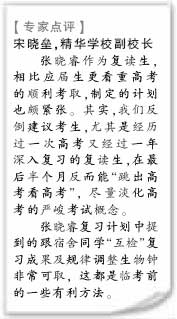 【专家点评】
宋晓垒,精华学校副校长
张晓睿作为复读生,
相比应届生更看重高考
的顺利考取,制定的计划
也颇紧张。其实,我们反
倒建议考生,尤其是经历
过一次高考又经过一年
深入复习的复读生,在最
后半个月反而能“跳出高
考看高考”,尽量淡化高
考的严峻考试概念。
张晓睿复习计划中提
到的跟宿舍同学“互检”复
习成果及规律调整生物钟
非常可取,这都是临考前
的一些有利方法。